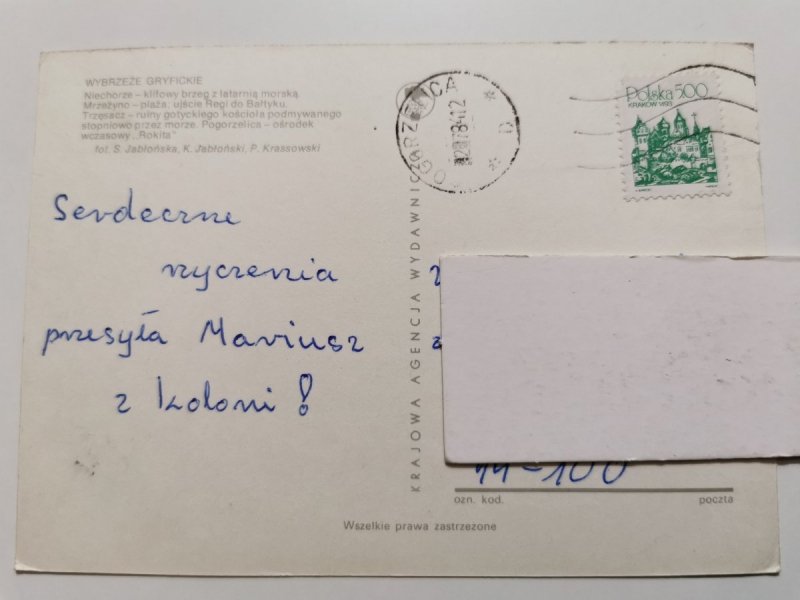 WYBRZEŻE GRYFICKIE
Niechorze – klifowy brzeg z latarnią morską.
Mrzeżyno – plaża; ujście Regi do Bałtyku.
Trzęsacz – ruiny gotyckiego kościoła podmywanego
stopniowo przez morze. Pogorzelica – ośrodek
wczasowy „Rokita"
fot. S. Jabłońska, K. Jabłoński, P. Krassowski
Serdeczne
rzyczenia
przesyła Mariusz
z Koloni!
KRAJOWA AGENCJA WYDAWNICZA
OGORZELICA
Polska 5.00
KRAKÓW 1493
11-100
ozn. kod.
poczta
Wszelkie prawa zastrzeżone